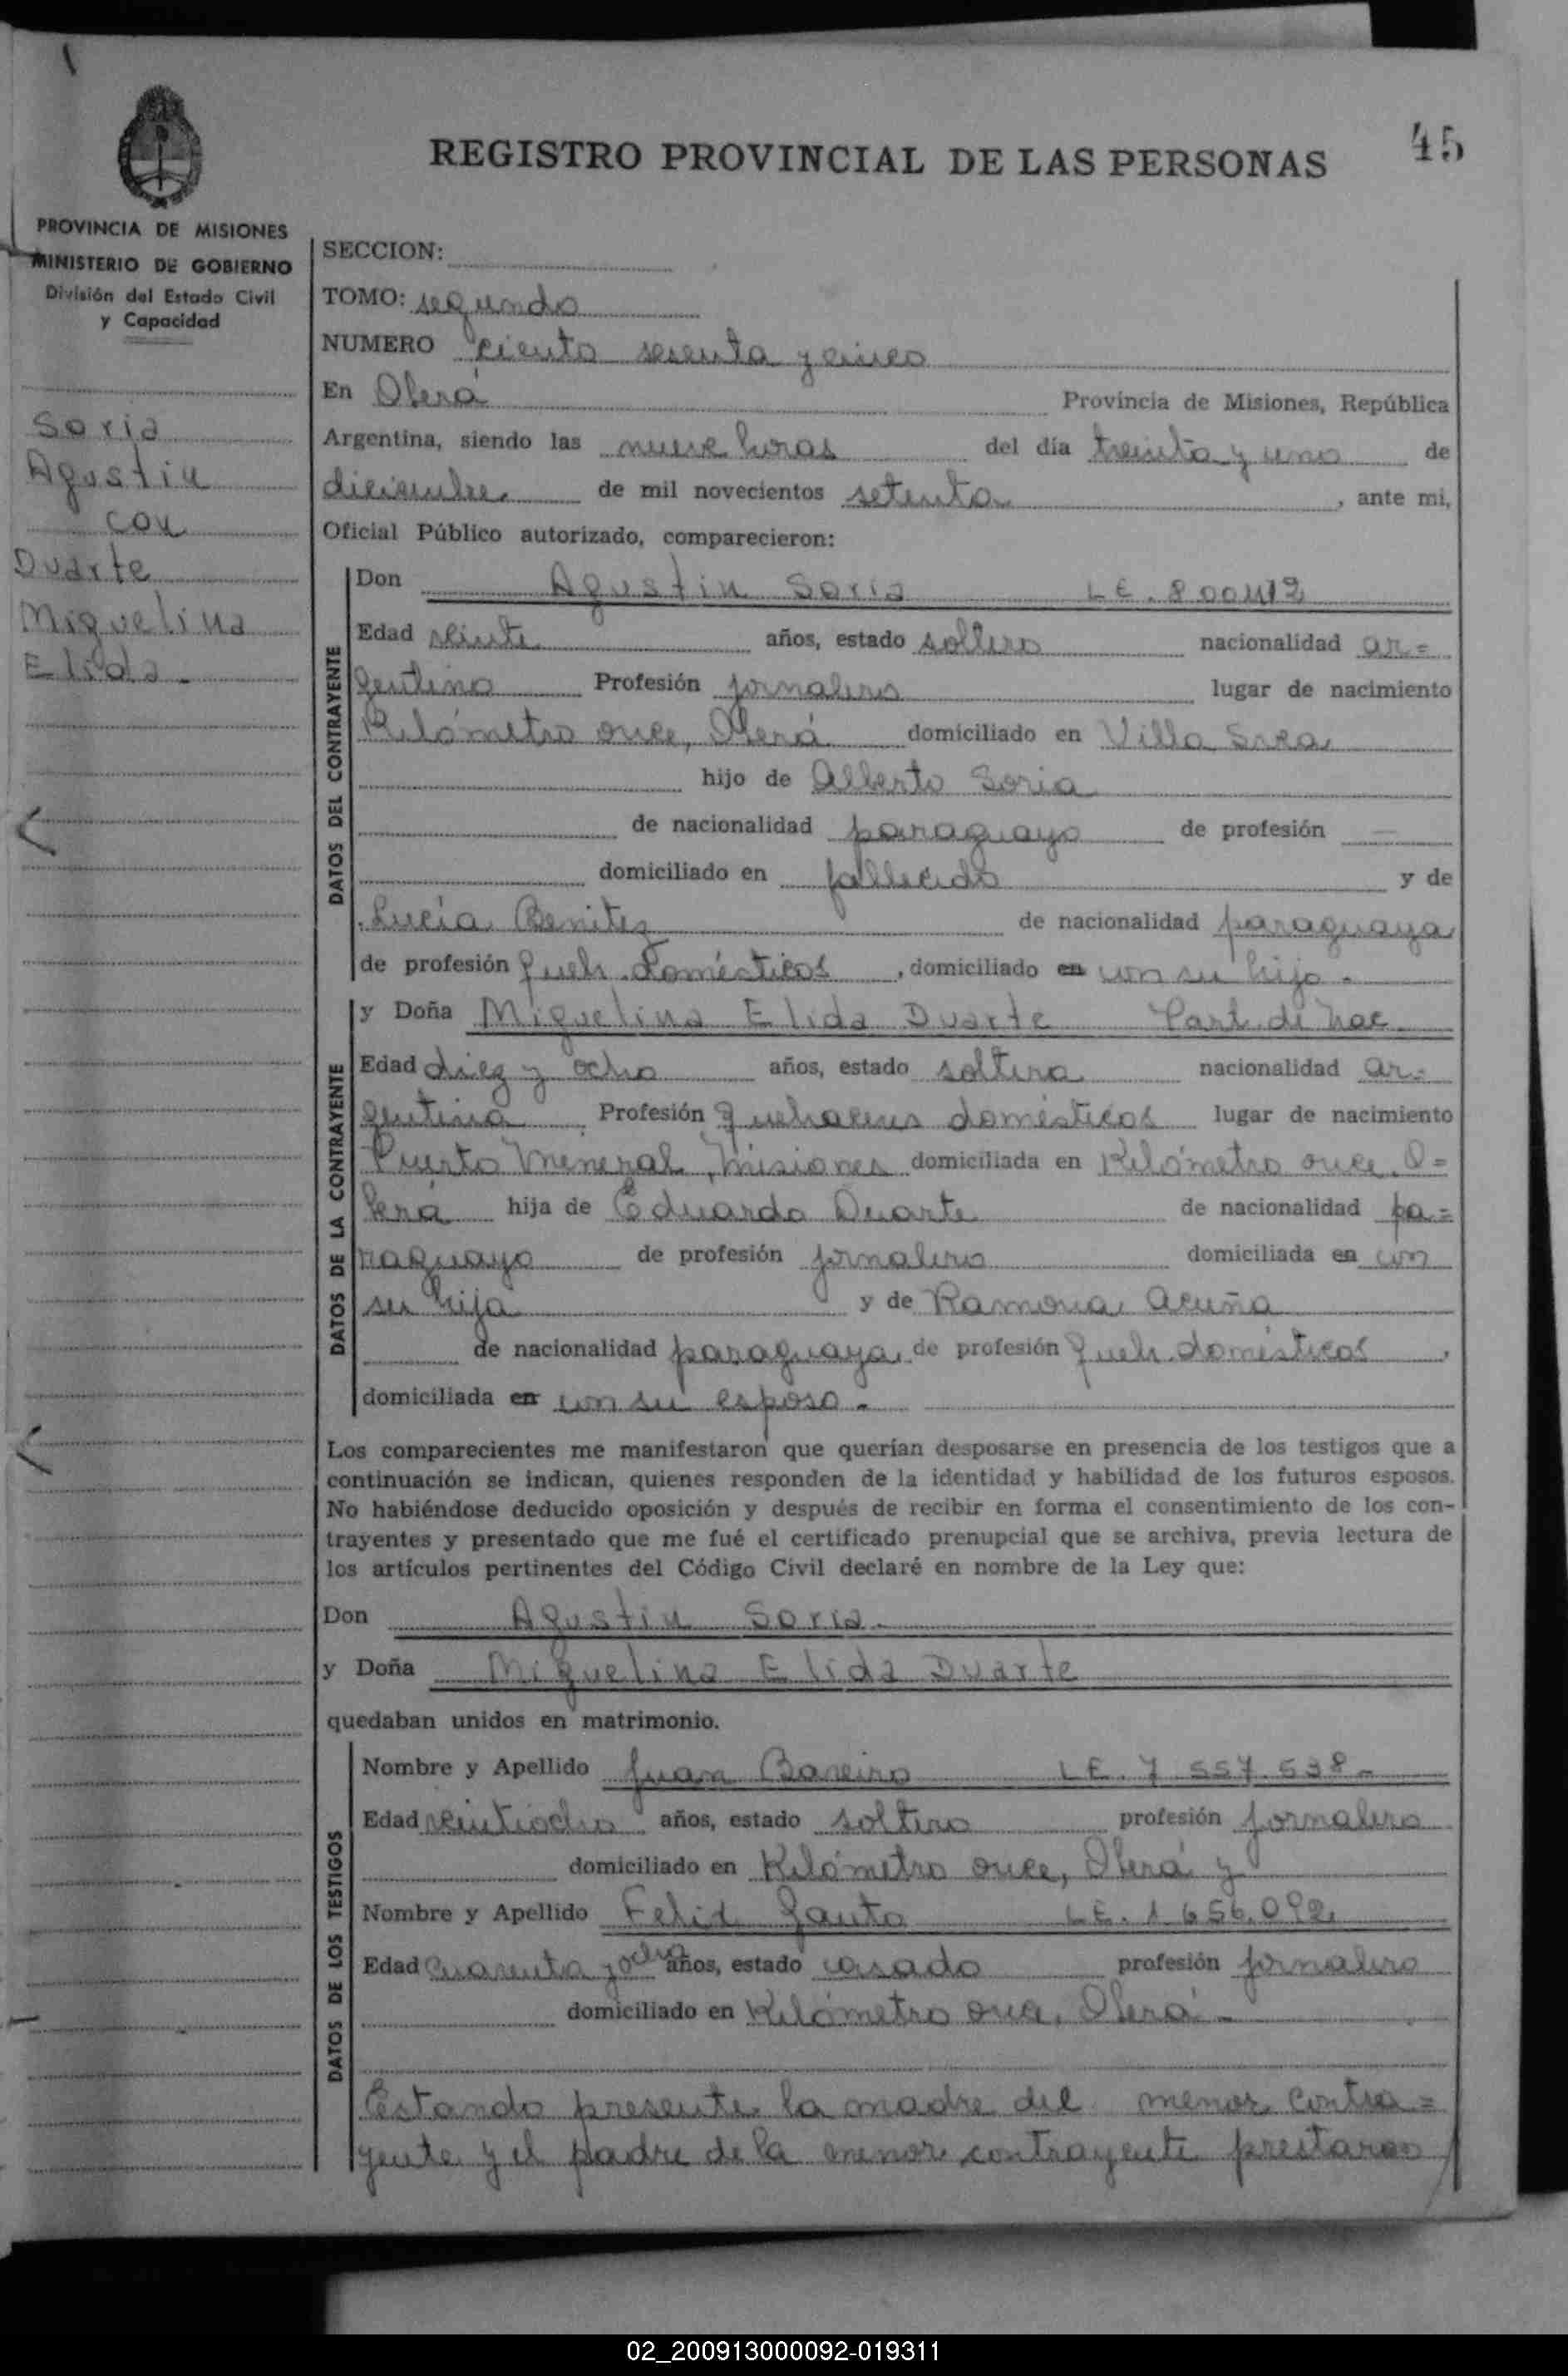 45
REGISTRO PROVINCIAL DE LAS PERSONAS
PROVINCIA DE MISIONES
MINISTERIO DE GOBIERNO
División del Estado Civil
y Capacidad
Soria
Agustin
con
Duarte
Miguelina
Elida.
SECCION:
TOMO: segundo
NUMERO ciento sesenta y cinco
En Oberá Provincia de Misiones, República
Argentina, siendo las nueve horas del día treinta y uno de
diciembre de mil novecientos setenta, ante mi,
Oficial Público autorizado, comparecieron:
DATOS DEL CONTRAYENTE
Don Agustin Soria LE.
Edad veinte años, estado soltero nacionalidad ar=
gentino Profesión jornalero lugar de nacimiento
Kilómetro once, Oberá domiciliado en Villa
hijo de Alberto Soria
de nacionalidad paraguayo de profesión —
domiciliado en fallecido y de
Lucía Benitez de nacionalidad paraguaya
de profesión queh. domésticos, domiciliado en con su hijo.
DATOS DE LA CONTRAYENTE
y Doña Miguelina Elida Duarte Part. de nac.
Edad diez y ocho años, estado soltera nacionalidad ar=
gentina Profesión quehaceres domésticos lugar de nacimiento
Puerto Mineral, Misiones domiciliada en Kilómetro once, O=
berá hija de Eduardo Duarte de nacionalidad pa=
raguayo de profesión jornalero domiciliada en con
su hija y de Ramona Acuña
de nacionalidad paraguaya, de profesión queh. domésticos,
domiciliada en con su esposo.
Los comparecientes me manifestaron que querían desposarse en presencia de los testigos que a
continuación se indican, quienes responden de la identidad y habilidad de los futuros esposos.
No habiéndose deducido oposición y después de recibir en forma el consentimiento de los con-
trayentes y presentado que me fué el certificado prenupcial que se archiva, previa lectura de
los artículos pertinentes del Código Civil declaré en nombre de la Ley que:
Don Agustin Soria.
y Doña Miguelina Elida Duarte
quedaban unidos en matrimonio.
DATOS DE LOS TESTIGOS
Nombre y Apellido Juan Bareiro LE. 7 557.538.
Edad veintiocho años, estado soltero profesión jornalero
domiciliado en Kilómetro once, Oberá y
Nombre y Apellido Felix Gauto LE. 1 656.092
Edad cuarenta y ocho años, estado casado profesión jornalero
domiciliado en Kilómetro once, Oberá.
Estando presente la madre del menor contra=
yente y el padre de la menor contrayente prestaron
02_200913000092-019311